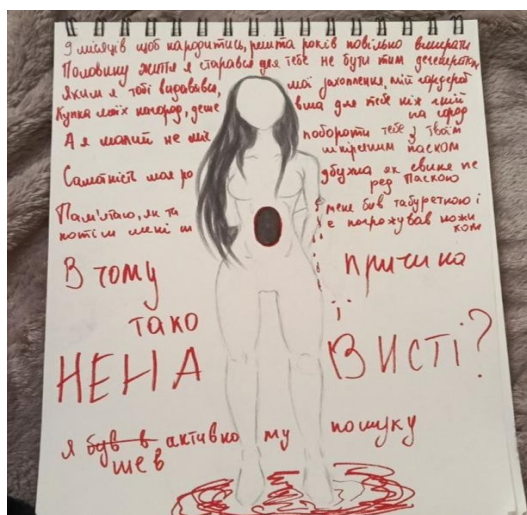 9 місяців щоб народитись, решта років повільно вмирати
Половину життя я старався для тебе не бути тим дегенератом
Яким я тобі видавався, мої захоплення, мій гардероб
Купка моїх нагород, деше вша для тебе ніж гній
на город
А я малий не міг побороти тебе з твоїм
шкіряним паском
Самотність моя ро дбухла як свиня пе
ред Паскою
Пам'ятаю, як ти мене бив табуреткою і
потім мені ш е погрожував ножи
ком
В тому причина
тако ї
НЕНА ВИСТІ?
я був в активно му пошуку
ще в